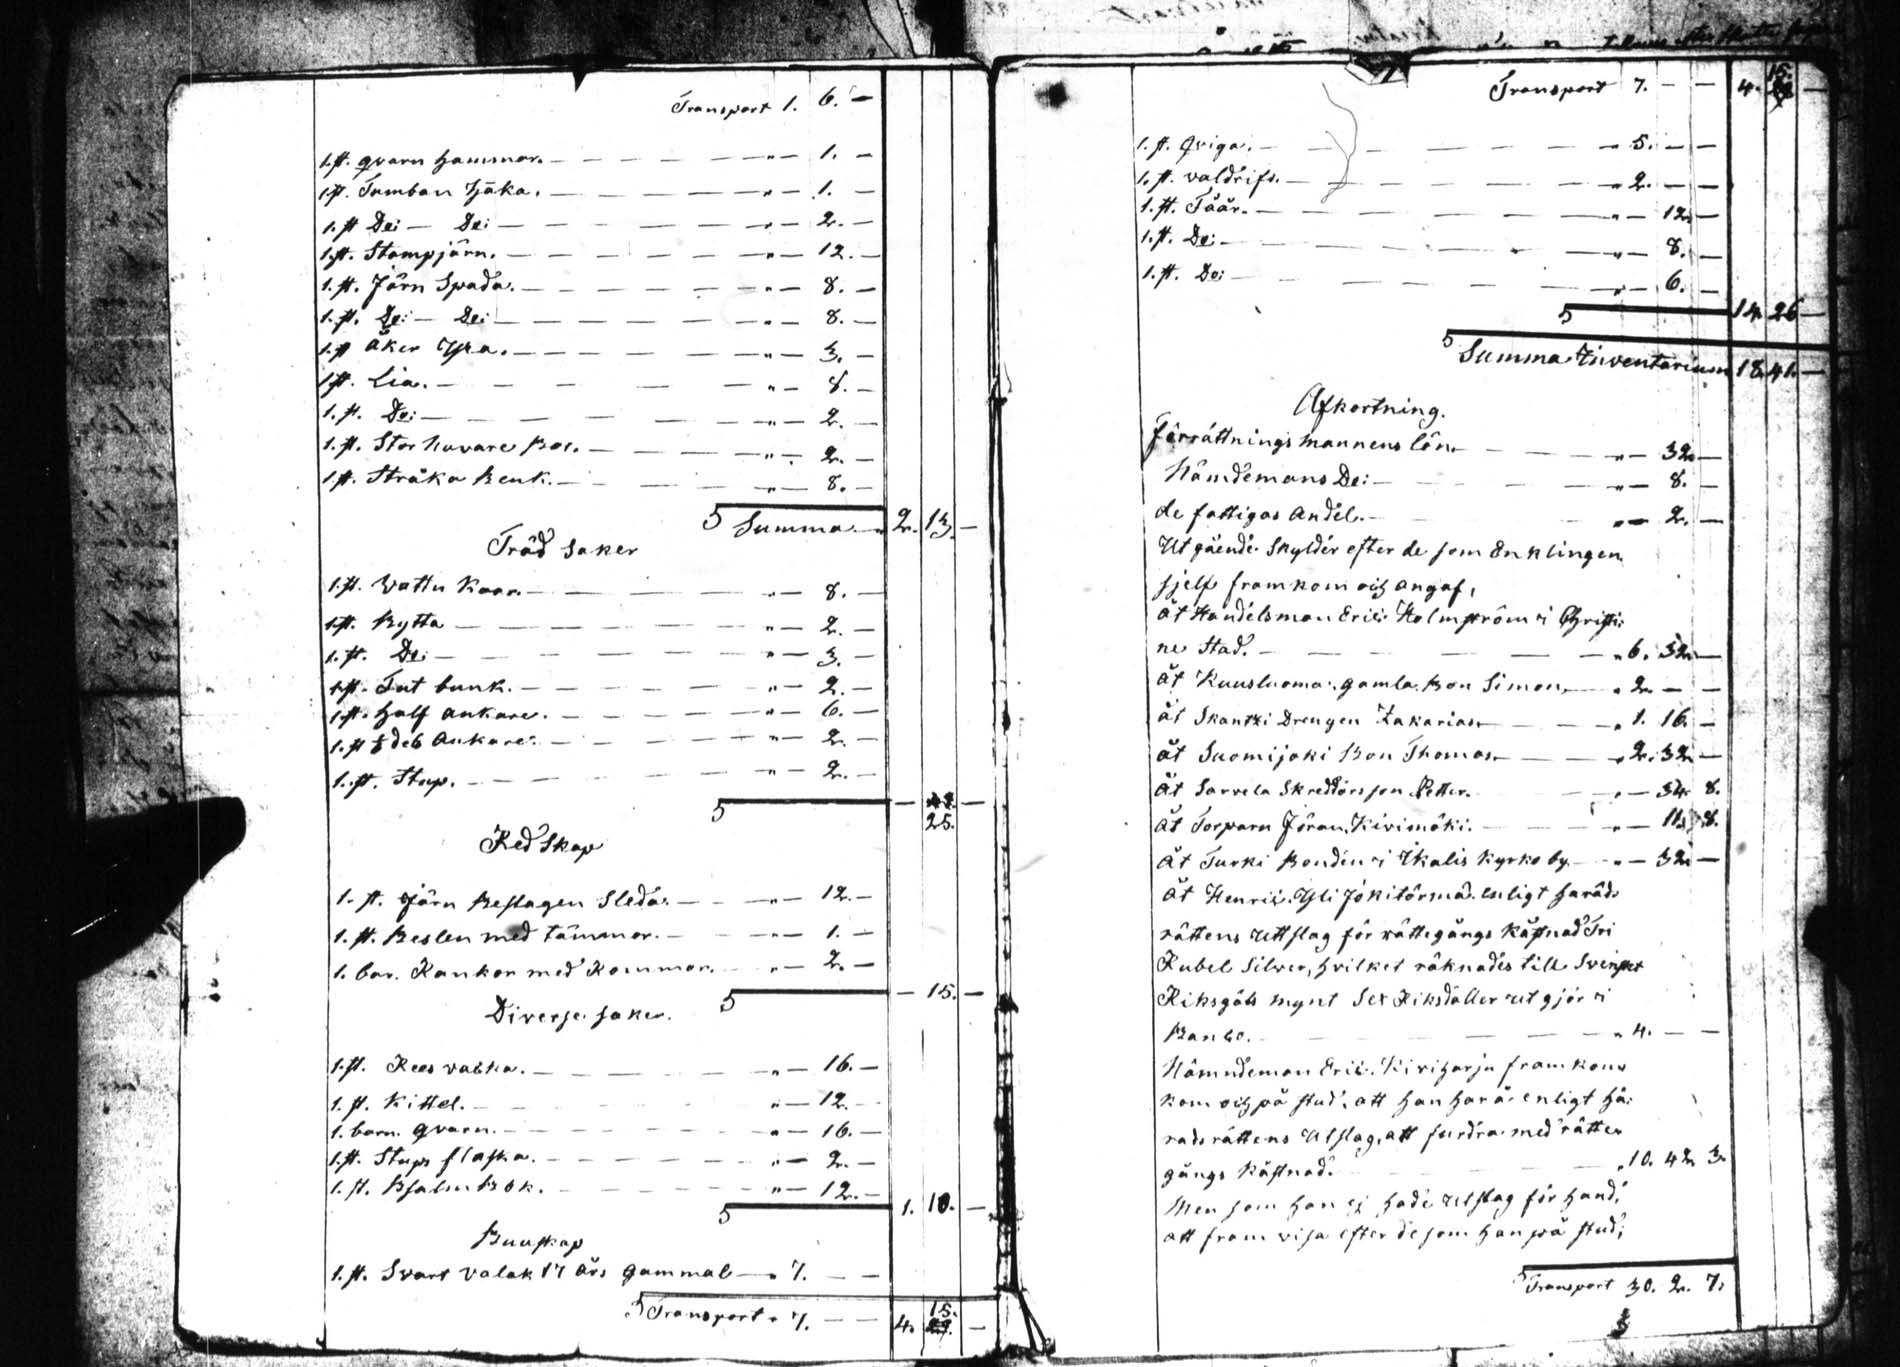 Transport 1. 6. —
1. st. qvarn hammar. — „ — 1. —
1. st. Tumban Hjäka. — „ — 1. —
1. st De: — De: — „ — 2. —
1. st. Stampjärn. — „ — 12. —
1. st. Järn Spada. — „ — 8. —
1. st. De: — De: — „ — 8. —
1. st Åker Yxa. — „ — 3. —
1. st. Lia. — „ — 8. —
1. st. De: — „ — 2. —
1. st. Stor Navare Bor. — „ — 2. —
1. st. Stråka Benk. — „ — 8. —
Summa — 2. 13. —
Träd saker
1. st. Vattu Kaar. — „ — 8. —
1. st. Bytta — „ — 2. —
1. st. De: — „ — 3. —
1. st. Tut bunk. — „ — 2. —
1. st. half ankare. — „ — 6. —
1. st ⅛ dels Ankare. — „ — 2. —
1. st. Stop. — „ — 2. —
— 25. —
Redskap
1. st. Järn Beslagen Släda. — „ — 12. —
1. st. Beslen med tämmar. — „ — 1. —
1. par. Rankor med Rommor. — „ — 2. —
— 15. —
Diverse saker.
1. st. Rees vaska. — „ — 16. —
1. st. Kittel. — „ — 12. —
1. barn. qvarn. — „ — 16. —
1. st. Stops flaska. — „ — 2. —
1. st. Psalm Bok. — „ — 12. —
1. 10. —
Buuskap
1. st. Svart Valak 17 års gammal — „ 7. — —
Transport „ 7. — — 4. 15. —
Transport 7. — — 4. 15. —
1. st. Qviga. — „ — 5. — —
1. st. valdrifs. — „ — 2. — —
1. st. Tåår. — „ — 12. —
1. st. De: — „ — 8. —
1. st. De: — „ — 6. —
14. 26 —
Summa Inventarium 18. 41. —
Afkortning.
förrättnings mannens lön. — „ — 32. —
Nämdemans De: — „ — 8. —
de fattigas andel. — „ — 2. —
Utgående Skylder efter de som Enklingen
sjelf framkom och angaf,
åt Handelsman Eric Holmström i Christi:
ne stad. — „ 6. 32. —
åt Kuusluoma gamla Bon Simon. — „ 2. — —
åt Skantzi Drengen Zakarias. — „ 1. 16. —
åt Suomijoki Bon Thomas. — „ 2. 32. —
åt Sarvela Skreddors son Petter. — „ — 34. 8.
åt Torparn Jöran Kivimäki. — „ — 11. 8.
åt Turki Bonden i Ikalis Kyrko by. — „ — 32. —
åt Henric Yli Jokitörmä enligt Härads
rättens Uttslag för rättegångs Kåstnad Tri
Rubel Silver, hvilket räknades till Svenskt
Riksgäls mynt Sex Riksdaller utgjör i
Banco. — „ 4. — —
Nämndeman Eric Kiviharju framkom
kom och på stud, att han har å enligt Hä:
rads rättens Utslag, att fordra med rätte
gångs Kåstnad. — „ 10. 42. 3.
Men som han ej hade Utslag för hand,
att fram visa efter de som han på stud,
Transport 30. 2. 7.